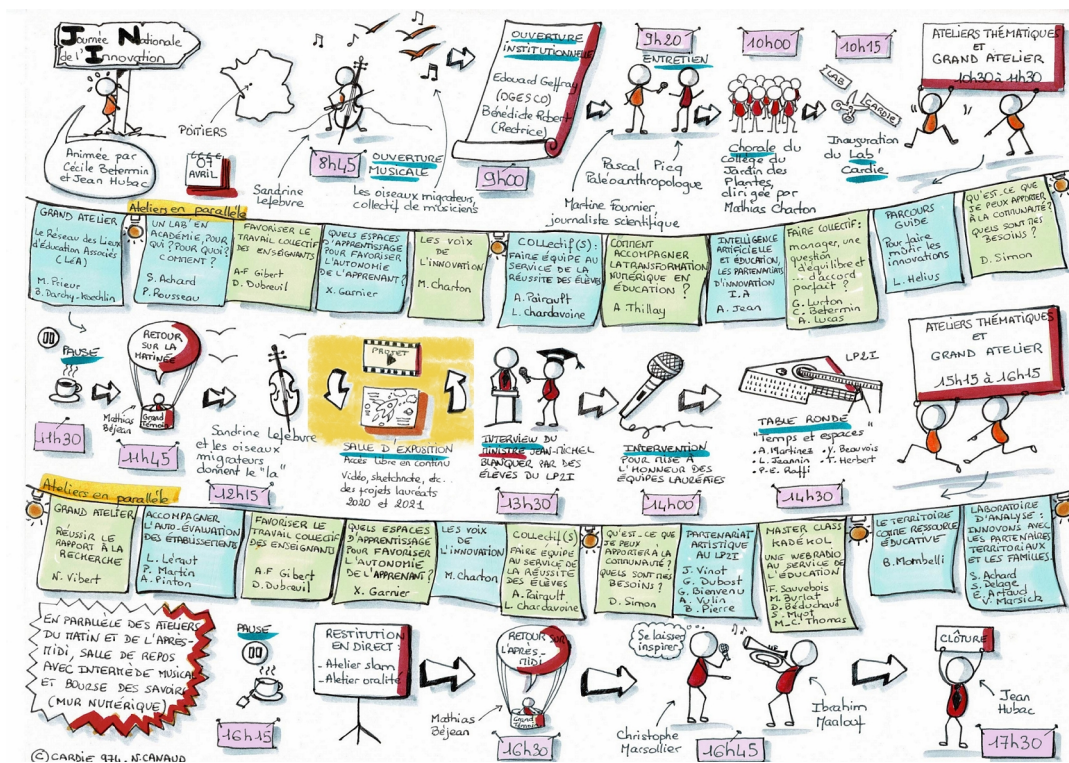 Journée Nationale
de l'Innovation
Animée par
Cécile Betermin
et Jean Hubac
POITIERS
07
AVRIL
Sandrine
Lefebure
8h45
OUVERTURE
MUSICALE
Les oiseaux migrateurs,
collectif de musiciens
OUVERTURE
INSTITUTIONNELLE
Edouard Geffray
(DGESCO)
Bénédicte Robert
(Rectrice)
9h00
9h20
ENTRETIEN
Pascal Picq
Paléoanthropologue
Martine Fournier,
journaliste scientifique
10h00
Chorale du
collège du
Jardin des
Plantes,
dirigée par
Mathias Charton
10h15
LAB
CARDIE
Inauguration
du Lab'
Cardie
ATELIERS THÉMATIQUES
ET
GRAND ATELIER
10h30 à 11h30
Ateliers en parallèle
GRAND ATELIER
Le Réseau des Lieux
d'Éducation Associés
(LéA)
M. Prieur
B. Darchy-Koechlin
UN LAB' EN
ACADÉMIE, POUR
QUI? POUR QUOI?
COMMENT ?
S. Achard
P. Rousseau
FAVORISER LE
TRAVAIL COLLECTIF
DES ENSEIGNANTS
A-F Gibert
D. Dubreuil
QUELS ESPACES
D'APPRENTISSAGE
POUR FAVORISER
L'AUTONOMIE
DE L'APPRENANT?
X. Garnier
LES VOIX
DE
L'INNOVATION
M. Charton
COLLECTIF(S):
FAIRE ÉQUIPE AU
SERVICE DE LA
RÉUSSITE DES ÉLÈVES
A. Pairault
L. Chardavoine
COMMENT
ACCOMPAGNER
LA TRANSFORMATION
NUMÉRIQUE EN
ÉDUCATION ?
A. Thillay
INTELLIGENCE
ARTIFICIELLE
ET ÉDUCATION,
LES PARTENARIATS
D'INNOVATION
I.A
A. Jean
FAIRE COLLECTIF:
manager, une
question
d'équilibre et
... d'accord
parfait ?
G. Lurton
C. Betermin
A. Lucas
PARCOURS
GUIDE
Pour faire
mûrir les
innovations
L. Helius
QU'EST-CE QUE
JE PEUX APPORTER
À LA COMMUNAUTÉ?
QUELS SONT MES
BESOINS ?
D. Simon
PAUSE
11h30
RETOUR
SUR LA
MATINÉE
Grand
Témoin
Mathias
Béjean
11h45
Sandrine Lefebure
et les oiseaux
migrateurs
donnent le "la"
12h15
PROJET
SALLE D'EXPOSITION
Accès libre en continu
Vidéo, sketchnote, etc...
des projets lauréats
2020 et 2021
INTERVIEW DU
MINISTRE JEAN-MICHEL
BLANQUER PAR DES
ÉLÈVES DU LP2I
13h30
INTERVENTION
POUR MISE À
L'HONNEUR DES
ÉQUIPES LAURÉATES
14h00
LP2I
TABLE RONDE
"Temps et espaces"
• A. Martinez • Y. Beauvois
• L. Jeannin • T. Herbert
• P-E. Raffi
14h30
ATELIERS THÉMATIQUES
ET
GRAND ATELIER
15h15 à 16h15
Ateliers en parallèle
GRAND ATELIER
RÉUSSIR LE
RAPPORT À LA
RECHERCHE
N. Vibert
ACCOMPAGNER
L'AUTO-ÉVALUATION
DES ÉTABLISSEMENTS
L. Léraut
P. Martin
A. Pinton
FAVORISER LE
TRAVAIL COLLECTIF
DES ENSEIGNANTS
A-F Gibert
D. Dubreuil
QUELS ESPACES
D'APPRENTISSAGE
POUR FAVORISER
L'AUTONOMIE
DE L'APPRENANT?
X. Garnier
LES VOIX
DE
L'INNOVATION
M. Charton
COLLECTIF(S)
FAIRE ÉQUIPE
AU SERVICE DE
LA RÉUSSITE
DES ÉLÈVES
A. Pairault
L. Chardavoine
QU'EST-CE QUE
JE PEUX
APPORTER À LA
COMMUNAUTÉ?
QUELS SONT MES
BESOINS ?
D. Simon
PARTENARIAT
ARTISTIQUE
AU LP2I
J. Vinot
G. Dubost
G. Bienvenu
A. Vulin
B. Pierre
MASTER CLASS
KADÉKOL
UNE WEBRADIO
AU SERVICE DE
L'ÉDUCATION
F. Sauvebois
M. Burlat
D. Béduchaut
S. Myot
M_C. Thomas
LE TERRITOIRE
COMME RESSOURCE
ÉDUCATIVE
B. Mombelli
LABORATOIRE
D'ANALYSE :
INNOVONS AVEC
LES PARTENAIRES
TERRITORIAUX
ET LES FAMILLES
S. Achard
S. Delage
E. Artaud
V. Marsick
EN PARALLÈLE DES ATELIERS
DU MATIN ET DE L'APRÈS-
MIDI, SALLE DE REPOS
AVEC INTERMÈDE MUSICAL
ET BOURSE DES SAVOIRS
(MUR NUMÉRIQUE)
PAUSE
16h15
RESTITUTION
EN DIRECT :
- Atelier slam
- Aletier oralité
RETOUR SUR
L'APRÈS-
MIDI
Grand
Témoin
Mathias
Béjean
16h30
Se laisser
inspirer
Christophe
Marsollier
16h45
Ibrahim
Maalouf
CLÔTURE
Jean
Hubac
17h30
© CARDIE 974. N. CANAUD